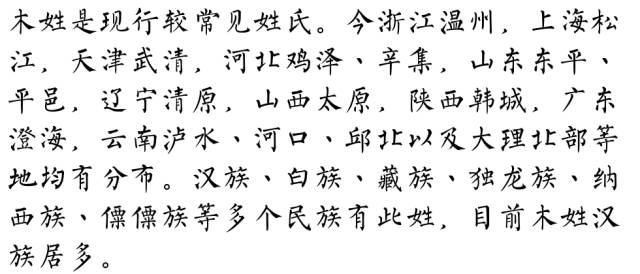 木姓是现行较常见姓氏。今浙江温州，上海松
江，天津武清，河北鸡泽、辛集，山东东平、
平邑，辽宁清原，山西太原，陕西韩城，广东
澄海，云南泸水、河口、邱北以及大理北部等
地均有分布。汉族、白族、藏族、独龙族、纳
西族、僳僳族等多个民族有此姓，目前木姓汉
族居多。